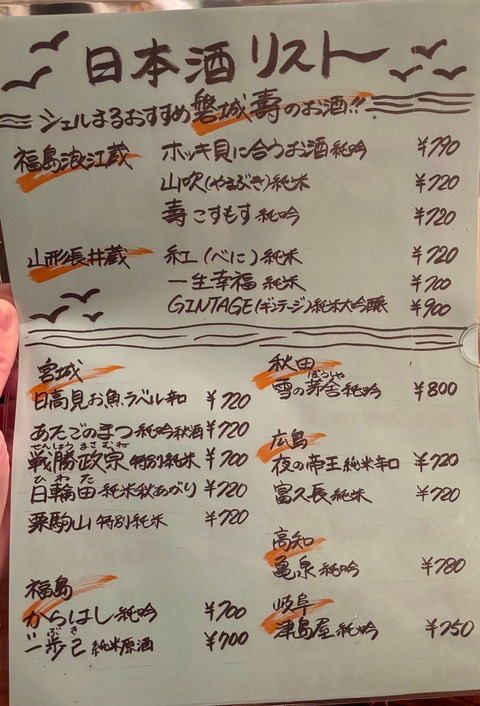 日本酒リスト
シェルまるおすすめ磐城壽のお酒!!
福島浪江蔵 ホッキ貝に合うお酒 純吟 ¥790
山吹(やまぶき)純米 ¥720
壽 こすもす 純吟 ¥720
山形長井蔵 紅(べに)純米 ¥720
一生幸福 純米 ¥700
GINTAGE(ギンテージ)純米大吟醸 ¥900
宮城
日高見お魚ラベル辛口 ¥720
あたごのまつ 純吟秋酒 ¥720
せんしょう まさ むね
戦勝政宗 特別純米 ¥700
ひ わ た
日輪田 純米秋あがり ¥720
栗駒山 特別純米 ¥720
福島
からはし 純吟 ¥700
ぶ き
一歩己 純米原酒 ¥700
秋田
ぼうしゃ
雪の茅舎 純吟 ¥800
広島
夜の帝王 純米辛口 ¥720
富久長 純米 ¥720
高知
亀泉 純吟 ¥780
岐阜
津島屋 純吟 ¥750